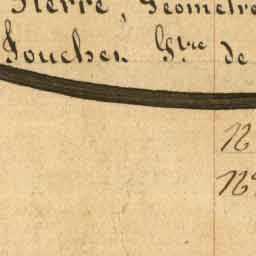 Pierre, Géomètre
Foucher Gtre de
N
No